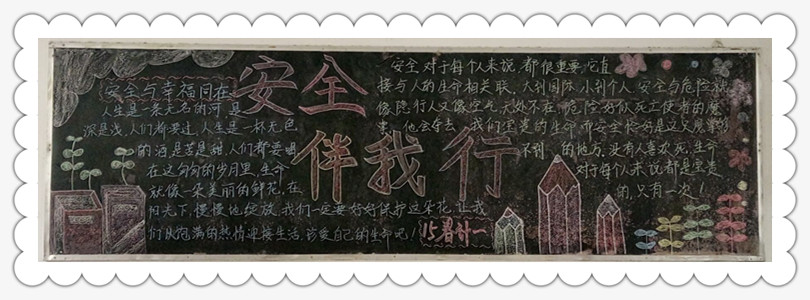 安全
伴我行
安全与幸福同在
人生是一条无名的河,是
深是浅,人们都要过,人生是一杯无色
的酒,是苦是甜,人们都要喝
在这匆匆的岁月里,生命
就像一朵美丽的鲜花,在
阳光下,慢慢地绽放,我们一定要好好保护这朵花,让我
们以饱满的热情迎接生活,珍爱自己的生命吧!
安全对于每个人来说,都很重要,它直
接与人的生命相关联,大到国际,小到个人,安全与危险就
像阴行人又像空气,无处不在,危险好似死亡使者的魔
我们宝贵的生命,而安全恰好是这只魔掌
不到的地方,没有人喜欢死,生命
对于每个人来说都是宝贵
的,只有一次!
15春计一